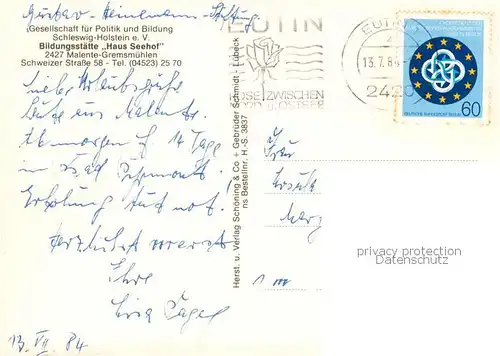 Gustav-Heinemann-Stiftung
Gesellschaft für Politik und Bildung
Schleswig-Holstein e. V.
Bildungsstätte „Haus Seehof"
2427 Malente-Gremsmühlen
Schweizer Straße 58 - Tel. (04523) 25 70
liebe Urlaubsgrüße
heute aus Malente.
Ab morgen f. 14 Tage
in Bad Pyrmont.
Erholung tut not.
Herzlichst
Ihre
13. VII. 84
Herst. u. Verlag Schöning & Co + Gebrüder Schmidt - Lübeck
ns Bestellnr. H.-S. 3837
EUTIN
ROSE ZWISCHEN
NORD U. OSTSEE
EUTIN
13.7.84
2420
DEUTSCHE BUNDESPOST BERLIN
60
Frau
privacy protection
Datenschutz